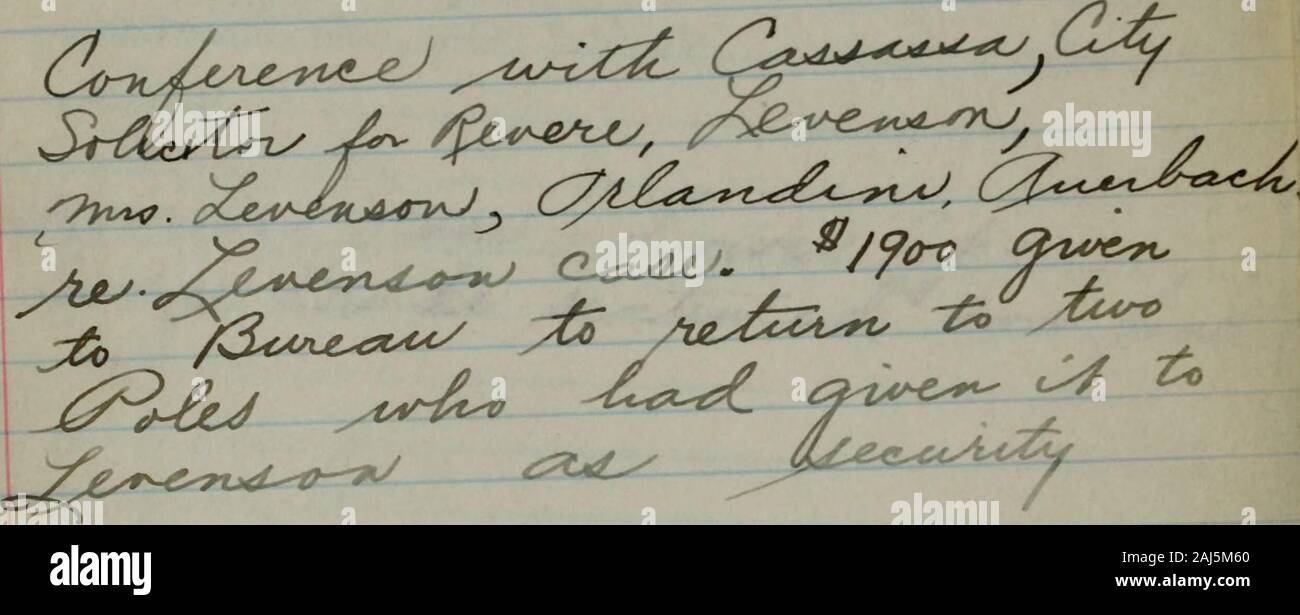 Conference with Cassassa, City
Solicitor for Revere, Levenson,
Mrs. Levenson, Orlandini, Auerbach
re. Levenson case. $1900 given
to Bureau to return to two
Poles who had given it to
Levenson as security
alamy
alamy
alamy
alamy
alamy
alamy
alamy
Image ID: 2AJ5M60
www.alamy.com